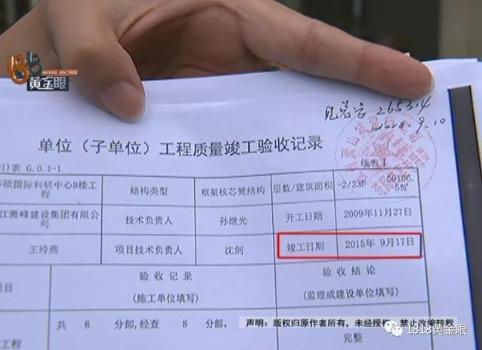 1818
HUANG JIN YAN
黄金眼
2653.4
9.10
单位（子单位）工程质量竣工验收记录
表 G.0.1-1
续表1
硕国际科研中心B楼工程
结构类型
框架核芯筒结构
层数/建筑面积
-2/33F
江茜峰建设集团有限公司
技术负责人
孙继光
开工日期
2009年11月27日
王玲燕
项目技术负责人
沈剑
竣工日期
2015年 9月17日
验 收 记 录
（施工单位填写）
验 收 结 论
（监理或建设单位填写）
共 8 分部,经查 8 分部,
声明：版权归原作者所有，未经授权，禁止改编转载
完整
1818黄金眼